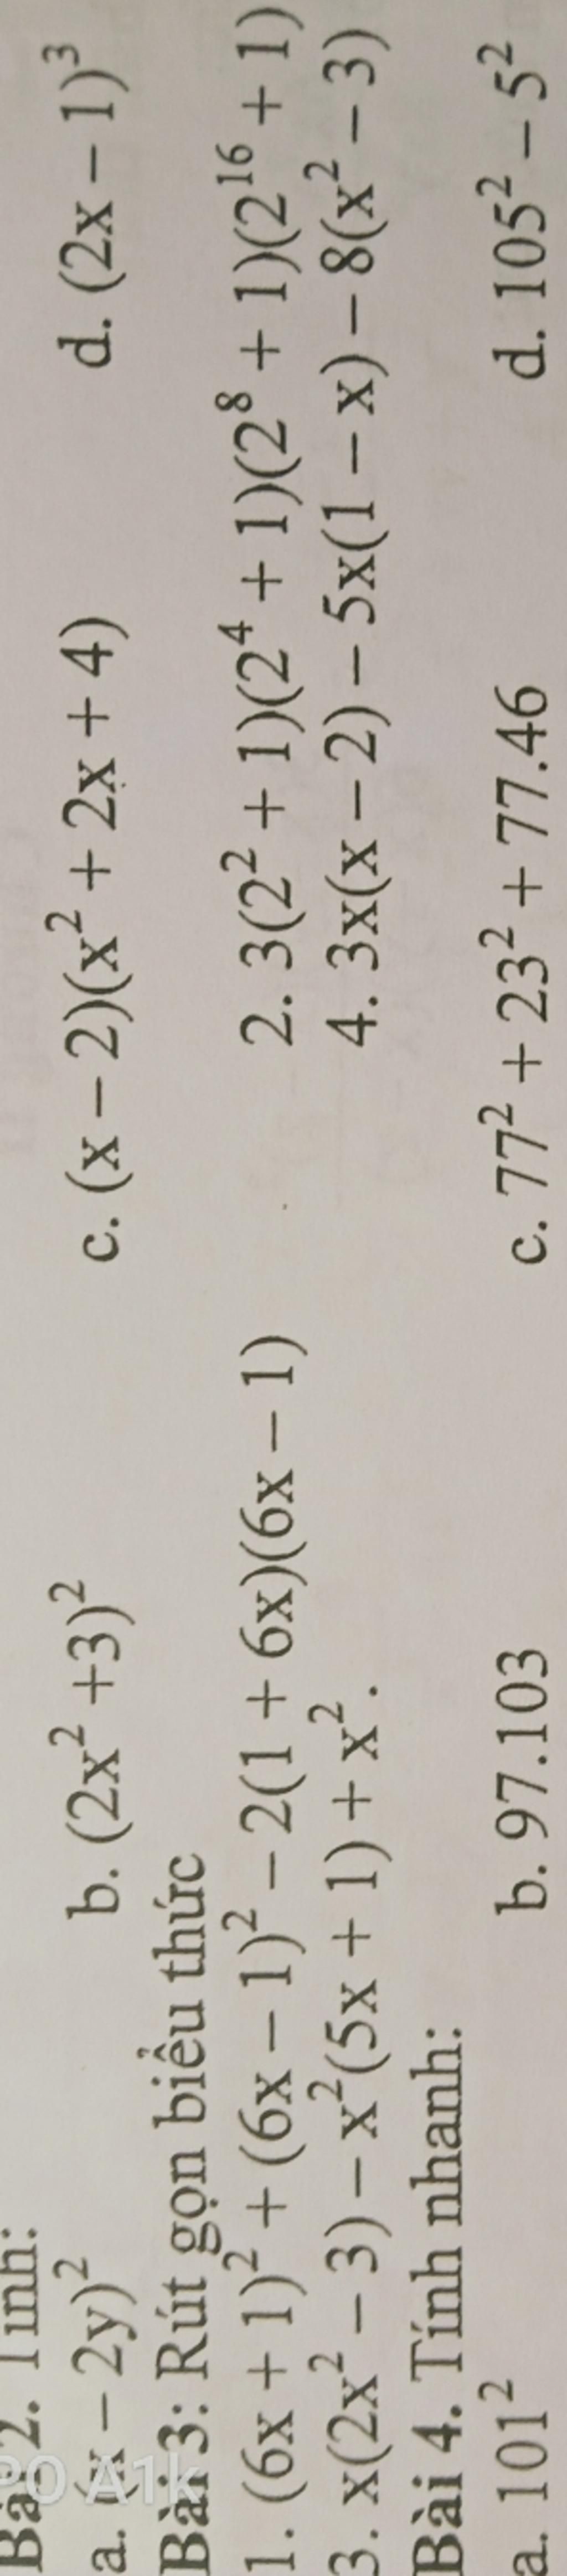 Bài 2. Tính:
a. (x − 2y)² b. (2x² +3)² c. (x − 2)(x² + 2x + 4) d. (2x − 1)³
Bài 3: Rút gọn biểu thức
1. (6x + 1)² + (6x − 1)² − 2(1 + 6x)(6x − 1) 2. 3(2² + 1)(2⁴ + 1)(2⁸ + 1)(2¹⁶ + 1)
3. x(2x² − 3) − x²(5x + 1) + x². 4. 3x(x − 2) − 5x(1 − x) − 8(x² − 3)
Bài 4. Tính nhanh:
a. 101² b. 97.103 c. 77² + 23² + 77.46 d. 105² − 5²